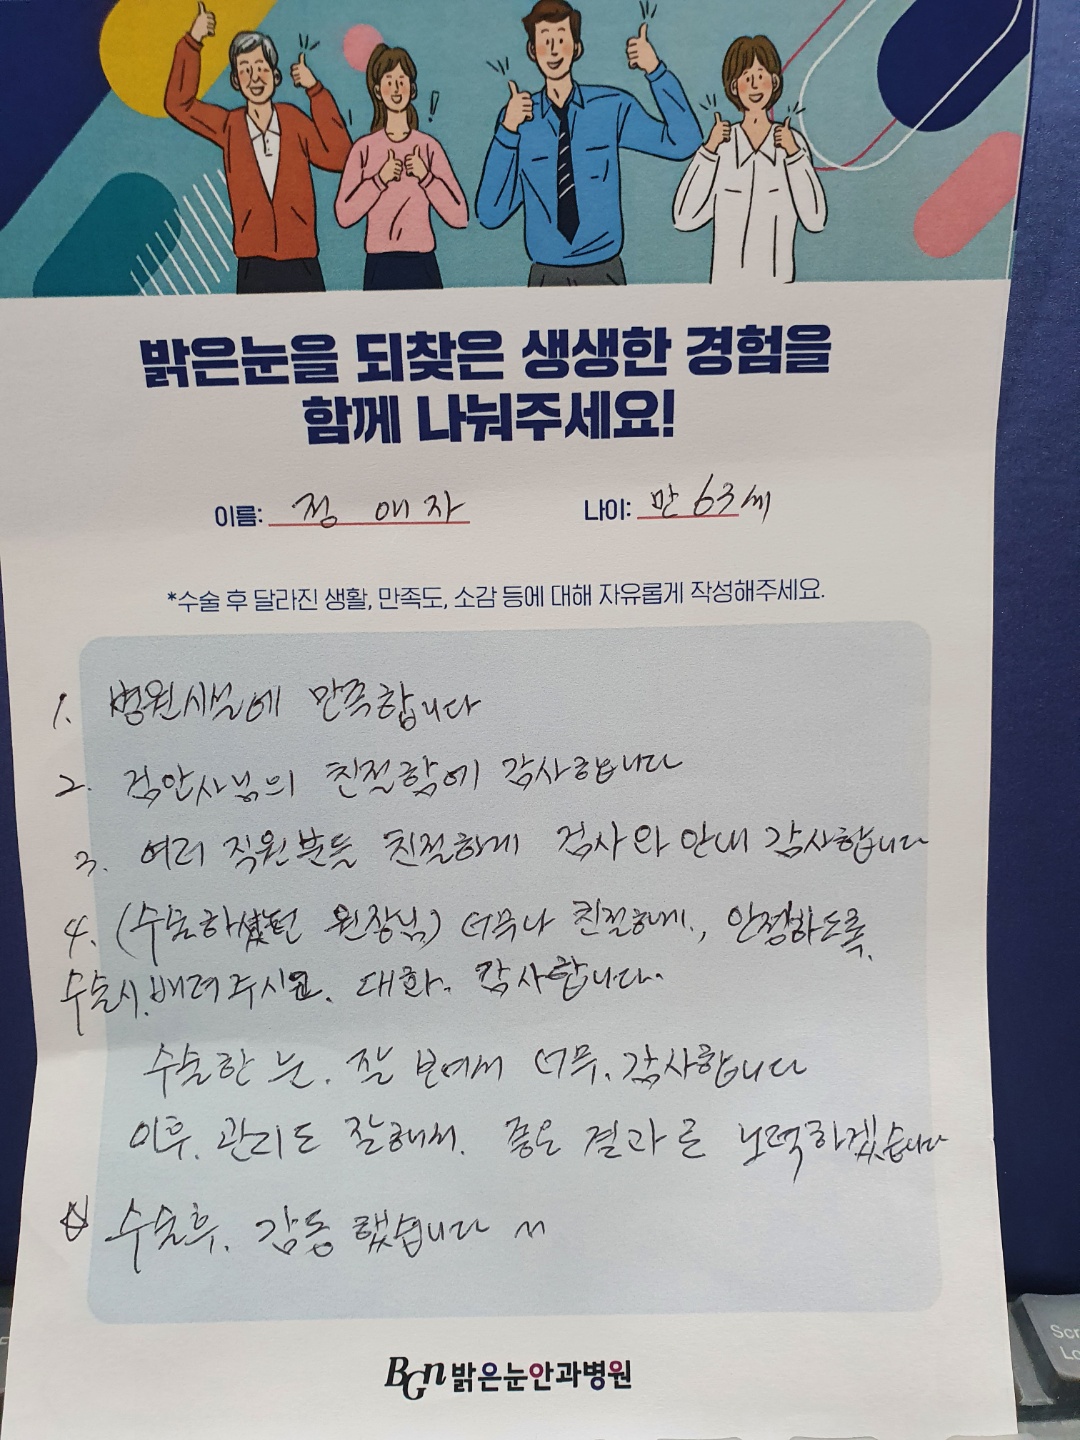 밝은눈을 되찾은 생생한 경험을
함께 나눠주세요!
이름: 정 애 자 나이: 만 63세
*수술 후 달라진 생활, 만족도, 소감 등에 대해 자유롭게 작성해주세요.
1. 병원시설에 만족합니다
2. 검안사님의 친절함에 감사합니다
3. 여러 직원분들 친절하게 검사와 안내 감사합니다
4. (수술하셨던 원장님) 너무나 친절하게, 안정하도록
수술시. 배려주시고. 대화. 감사합니다.
수술한 눈. 잘 보여서 너무. 감사합니다
이후. 관리도 잘해서. 좋은 결과로 노력하겠습니다
☆ 수술후. 감동 했습니다 ~
BGn 밝은눈안과병원
Scr
Lo